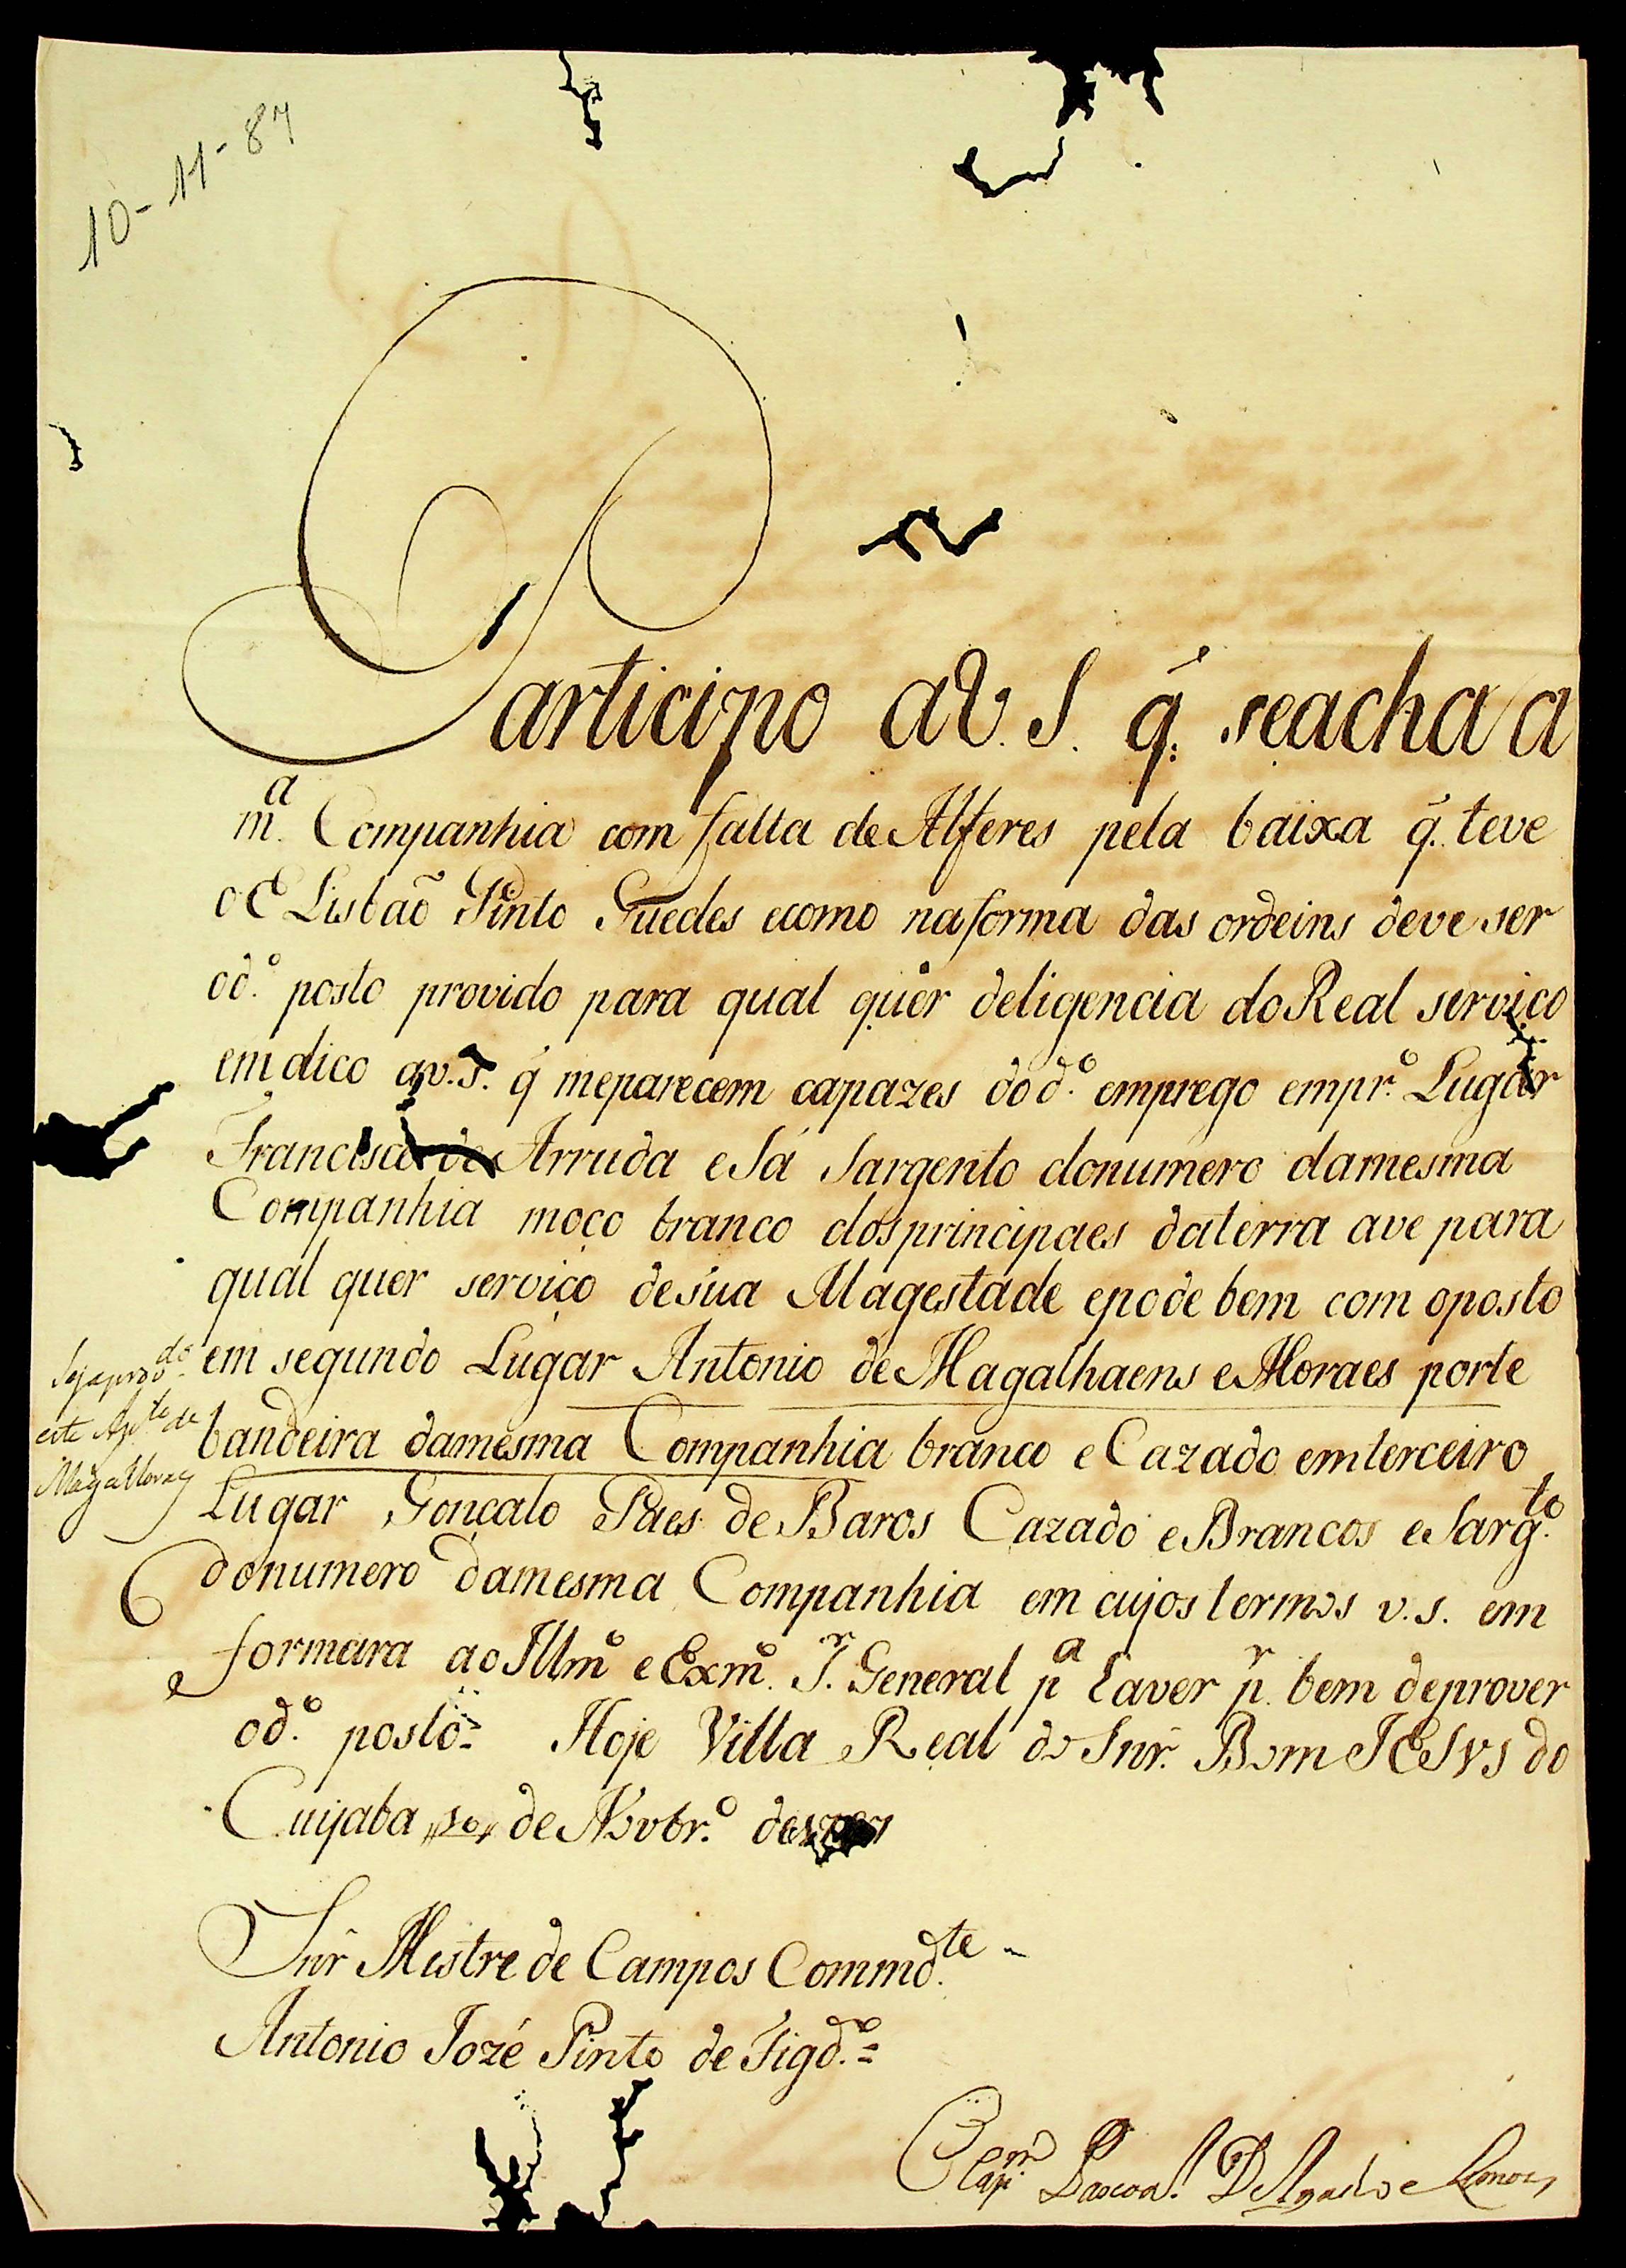 10-11-87
Participo aV. S. q̃. seacha a
m.ª Companhia com falta de Alferes pela baixa q̃. teve
o E Lisbaõ Pinto Guedes ecomo naforma das ordeins deve ser
od.º posto provido para qual quer deligencia doReal serviço
em dico av.S. q̃ meparecem capazes dod.º emprego empr.º Lugar
Francisco de Arruda eSá Sargento donumero damesma
Companhia moço branco dosprincipaes daterra ave para
qual quer serviço desua Magestade epode bem com oposto
em segundo Lugar Antonio deMagalhaens eMoraes porte
bandeira damesma Companhia branco e Cazado emterceiro
Lugar Gonçalo Paes de Baros Cazado eBrancos eSarg.to
donumero damesma Companhia em cujos termos v.s. em
formara ao Illmº eExmº. S.r General p.ª Eaver p.r bem deprover
od.º posto Hoje Villa Real do Snr. Bom JESVS do
Cuijaba 10 de Novbr.º de
Sejaprov.do
este Ant.º de
Mag.
Snr Mestre de Campos Commd.te
Antonio Jozé Pinto de Figd.º
Capm Pascoal Delgado e